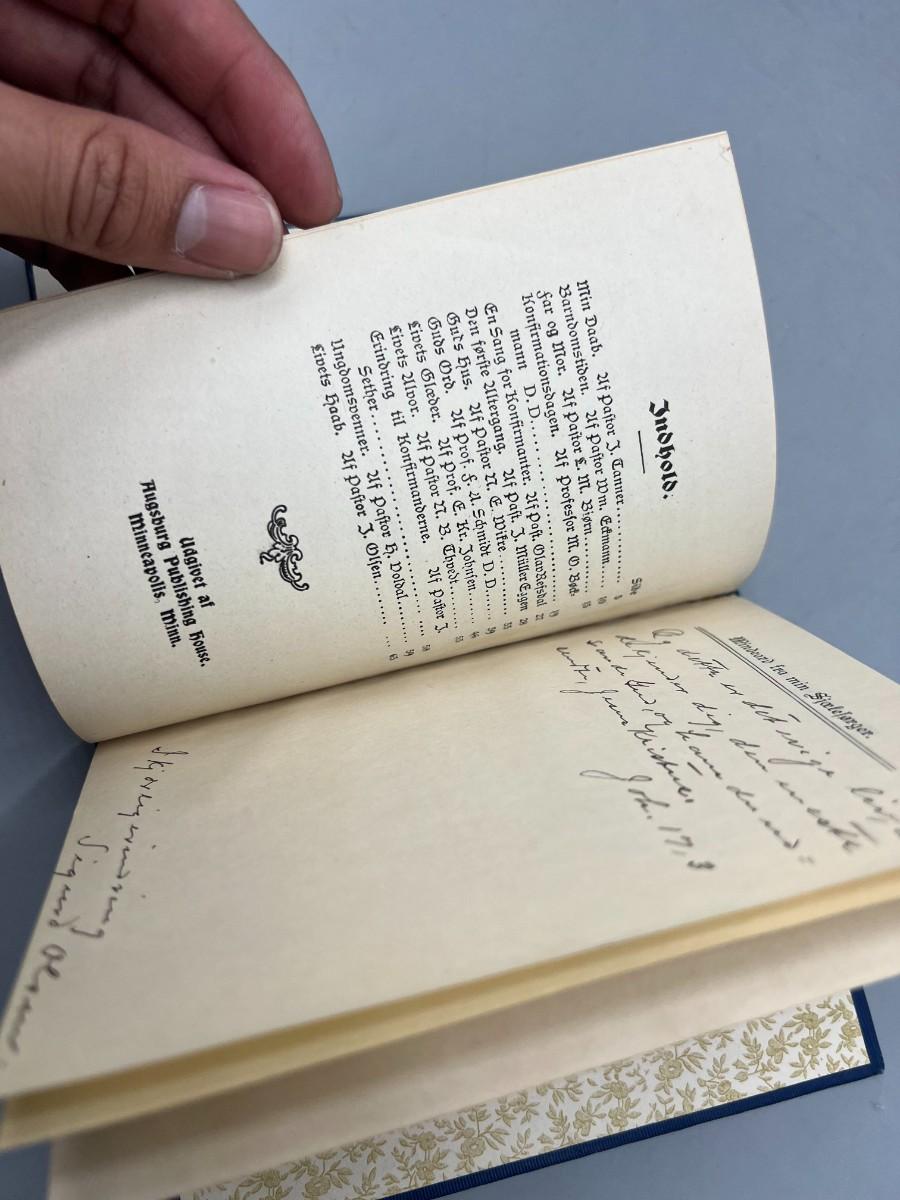 Indhold.
Side
Min Daab. Af Pastor J. Tanner........ 5
Barndomstiden. Af Pastor Wm. Eckmann..... 10
Far og Mor. Af Pastor L. M. Biørn..... 15
Konfirmationsdagen. Af Professor M. O. Bøck-
mann D. D................ 19
En Sang for Konfirmanter. Af Past. Olav Refsdal 27
Den første Altergang. Af Past. J. Müller Eggen 28
Guds Hus. Af Pastor N. E. Wikre....... 35
Guds Ord. Af Prof. F. A. Schmidt D. D..... 39
Livets Glæder. Af Prof. E. Kr. Johnsen.... 46
Livets Alvor. Af Pastor N. B. Thvedt..... 53
Erindring til Konfirmanderne. Af Pastor J.
Sether................ 58
Ungdomsvenner. Af Pastor H. Voldal...... 59
Livets Haab. Af Pastor J. Olsen....... 65
Udgivet af
Augsburg Publishing House.
Minneapolis, Minn.
Mindeord fra min Sjælesørger.
Og dette er det evige liv, at
de kjender dig, den eneste
sande Gud, og ham du ud=
sendte, Jesum Kristum.
Joh. 17,3